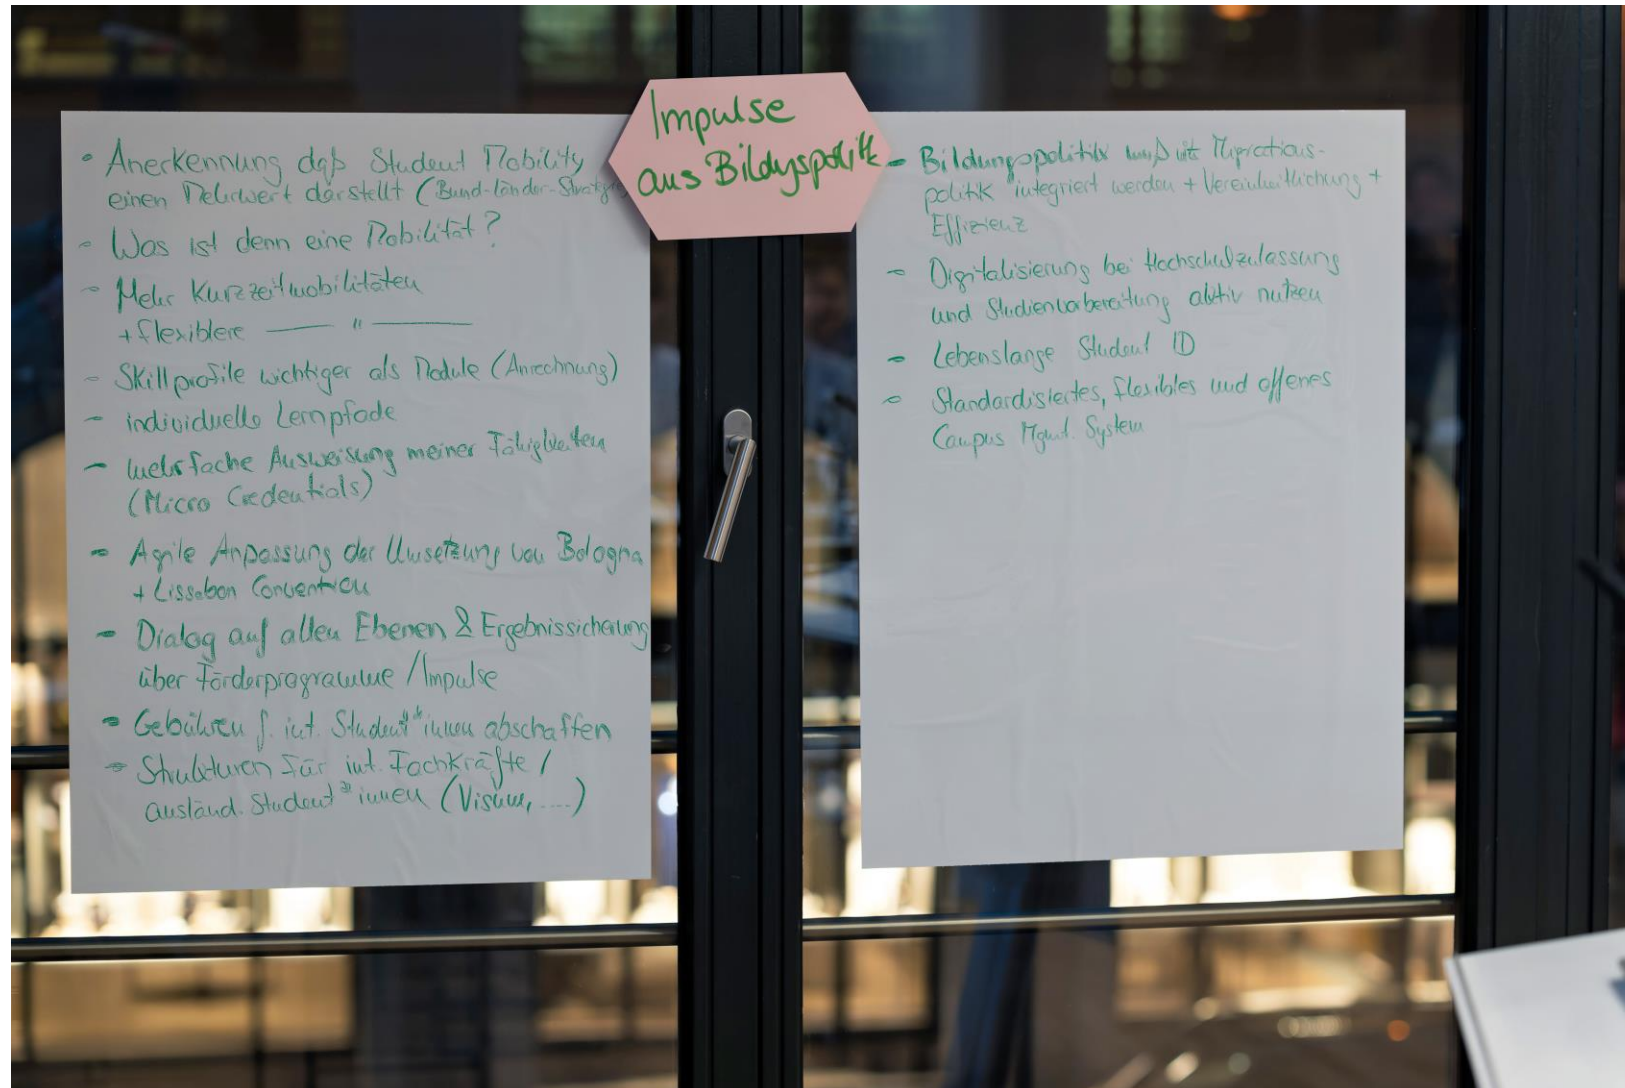 Impulse
aus Bildungspolitik
• Anerkennung daß Student Mobility
einen Mehrwert darstellt (Bund-Länder-Strategie
- Was ist denn eine Mobilität?
- Mehr Kurzzeitmobilitäten
+ flexiblere —— " ——
- Skillprofile wichtiger als Module (Anrechnung)
- individuelle Lernpfade
- mehrfache Ausweisung meiner Fähigkeiten
(Micro Credentials)
- Agile Anpassung der Umsetzung von Bologna
+ Lissabon Convention
- Dialog auf allen Ebenen & Ergebnissicherung
über Förderprogramme / Impulse
- Gebühren f. int. Student*innen abschaffen
- Strukturen für int. Fachkräfte /
ausländ. Student*innen (Visum, ....)
- Bildungspolitik muß mit Migrations-
politik integriert werden + Vereinheitlichung +
Effizienz
- Digitalisierung bei Hochschulzulassung
und Studienvorbereitung aktiv nutzen
- Lebenslange Student ID
- Standardisiertes, flexibles und offenes
Campus Mgmt. System